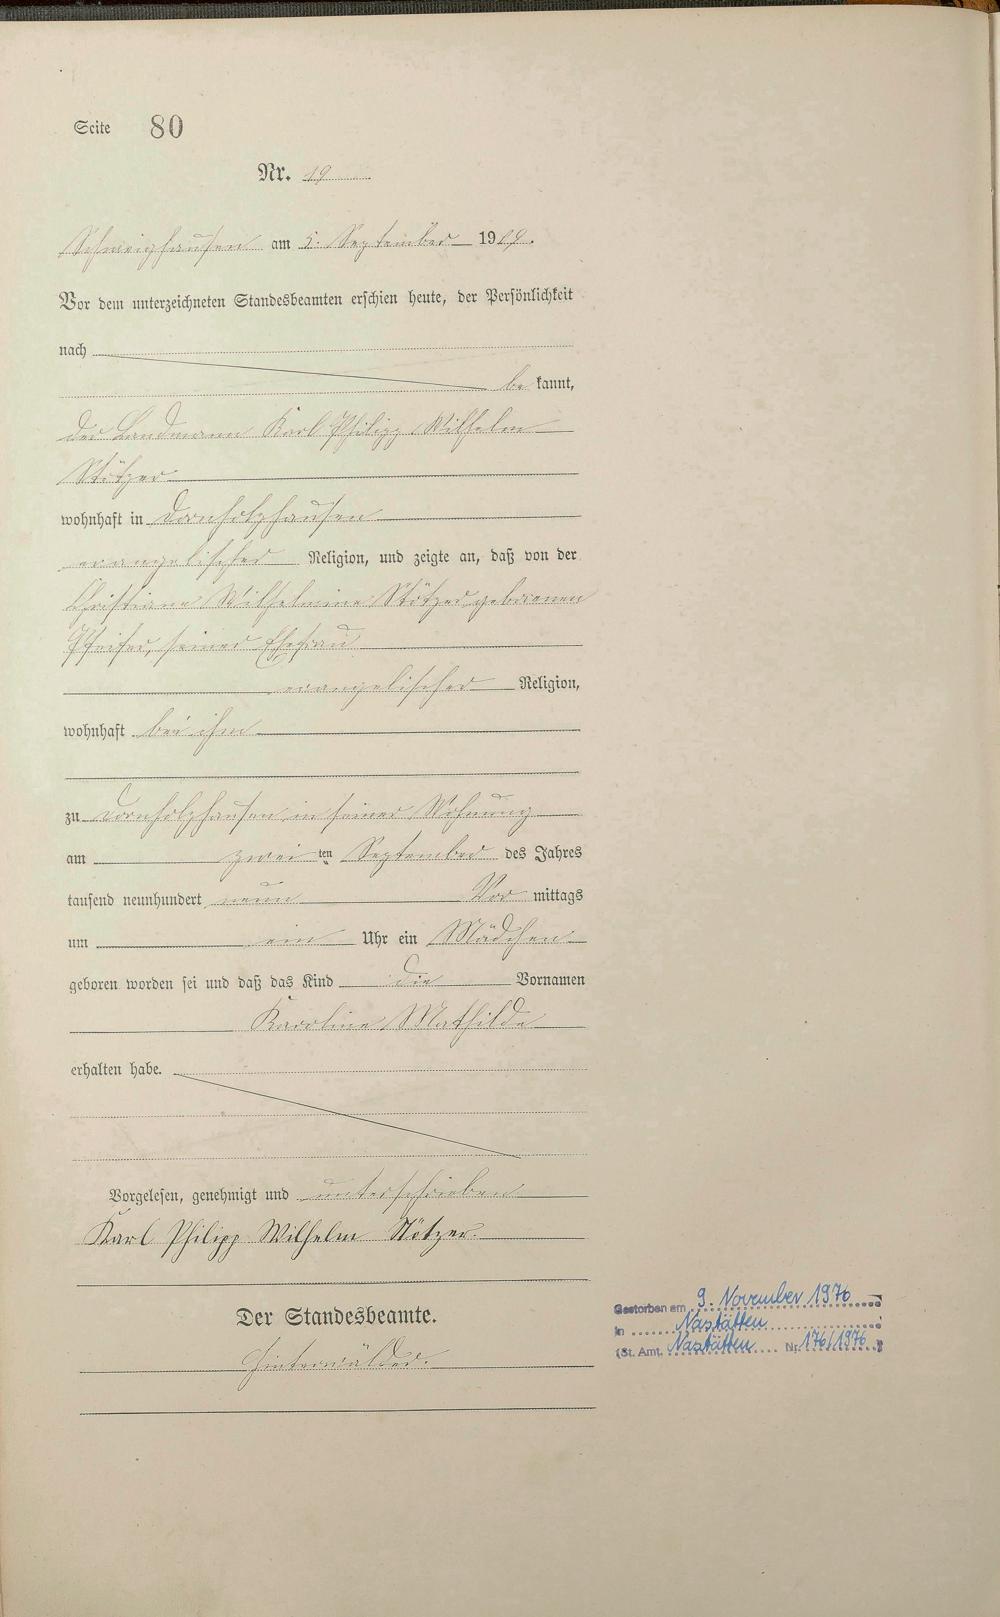 Seite 80
Nr. 19
Schweighausen am 5. September 1909.
Vor dem unterzeichneten Standesbeamten erschien heute, der Persönlichkeit
nach
be kannt,
der Landmann Karl Philipp Wilhelm
Stötzer
wohnhaft in Dornholzhausen
evangelischer Religion, und zeigte an, daß von der
Christiane Wilhelmine Stötzer geborenen
Pfeifer, seiner Ehefrau
evangelischer Religion,
wohnhaft bei ihm
zu Dornholzhausen in seiner Wohnung
am zwei ten September des Jahres
tausend neunhundert neun Vor mittags
um ein Uhr ein Mädchen
geboren worden sei und daß das Kind die Vornamen
Karoline Mathilde
erhalten habe.
Vorgelesen, genehmigt und unterschrieben
Karl Philipp Wilhelm Stötzer.
Der Standesbeamte.
Hinterwälder.
Gestorben am 9. November 1976
in Nastätten
(St. Amt. Nastätten Nr. 176/1976 )